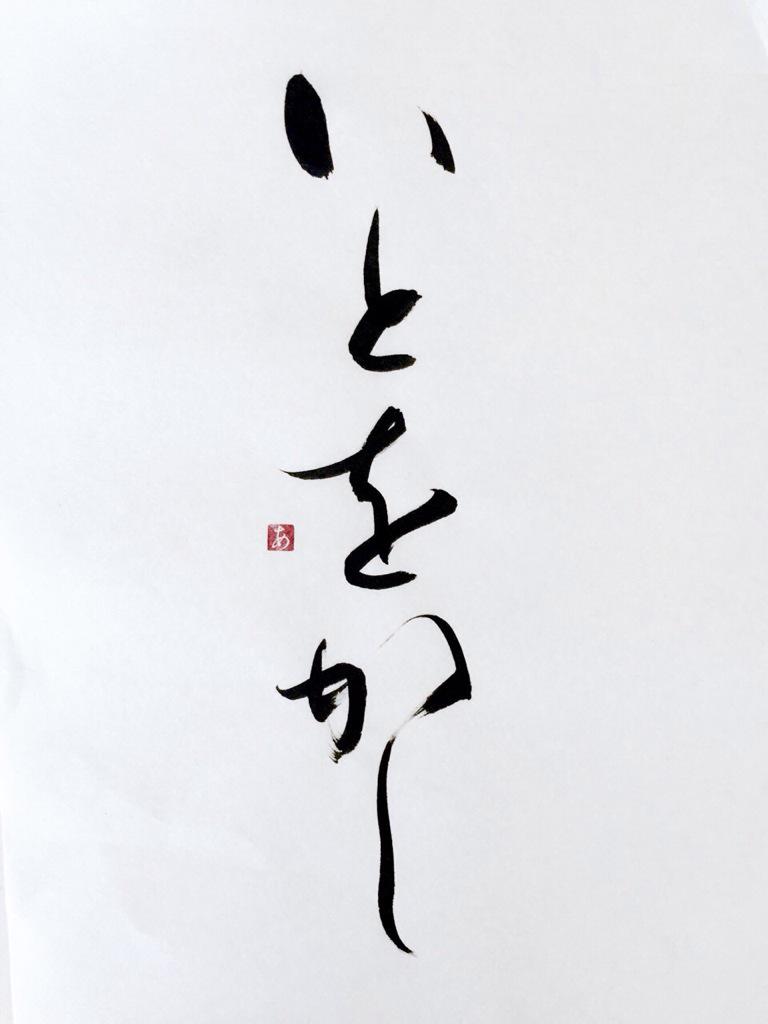 いとをかし
あ